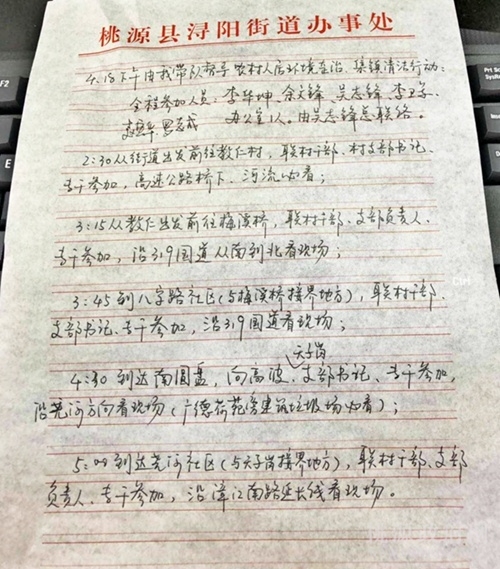 桃源县浔阳街道办事处
4.18下午由我带队督导农村人居环境整治、集镇清洁行动:
全程参加人员:李华坤、余文锋、吴志锋、李卫
办公室1人。由吴志锋总联络。
2:30从街道出发前往教仁村,联村干部、村支部书记、
专干参加,高速公路桥下、河流必看;
3:15从教仁出发前往梅溪桥,联村干部、支部负责人、
专干参加,沿319国道从南到北看现场;
3:45到八字路社区(与梅溪桥接界地方),联村干部、
支部书记、专干参加,沿319国道看现场;
天子岗
4:30到达南圆盘,向高波、支部书记、专干参加,
沿尧河方向看现场(广德荷苑旁建筑垃圾场必看);
5:00到达尧河社区(与天子岗接界地方),联村干部、支部
负责人、专干参加,沿漳江南路延长线看现场。
F2
E
Prt Sc